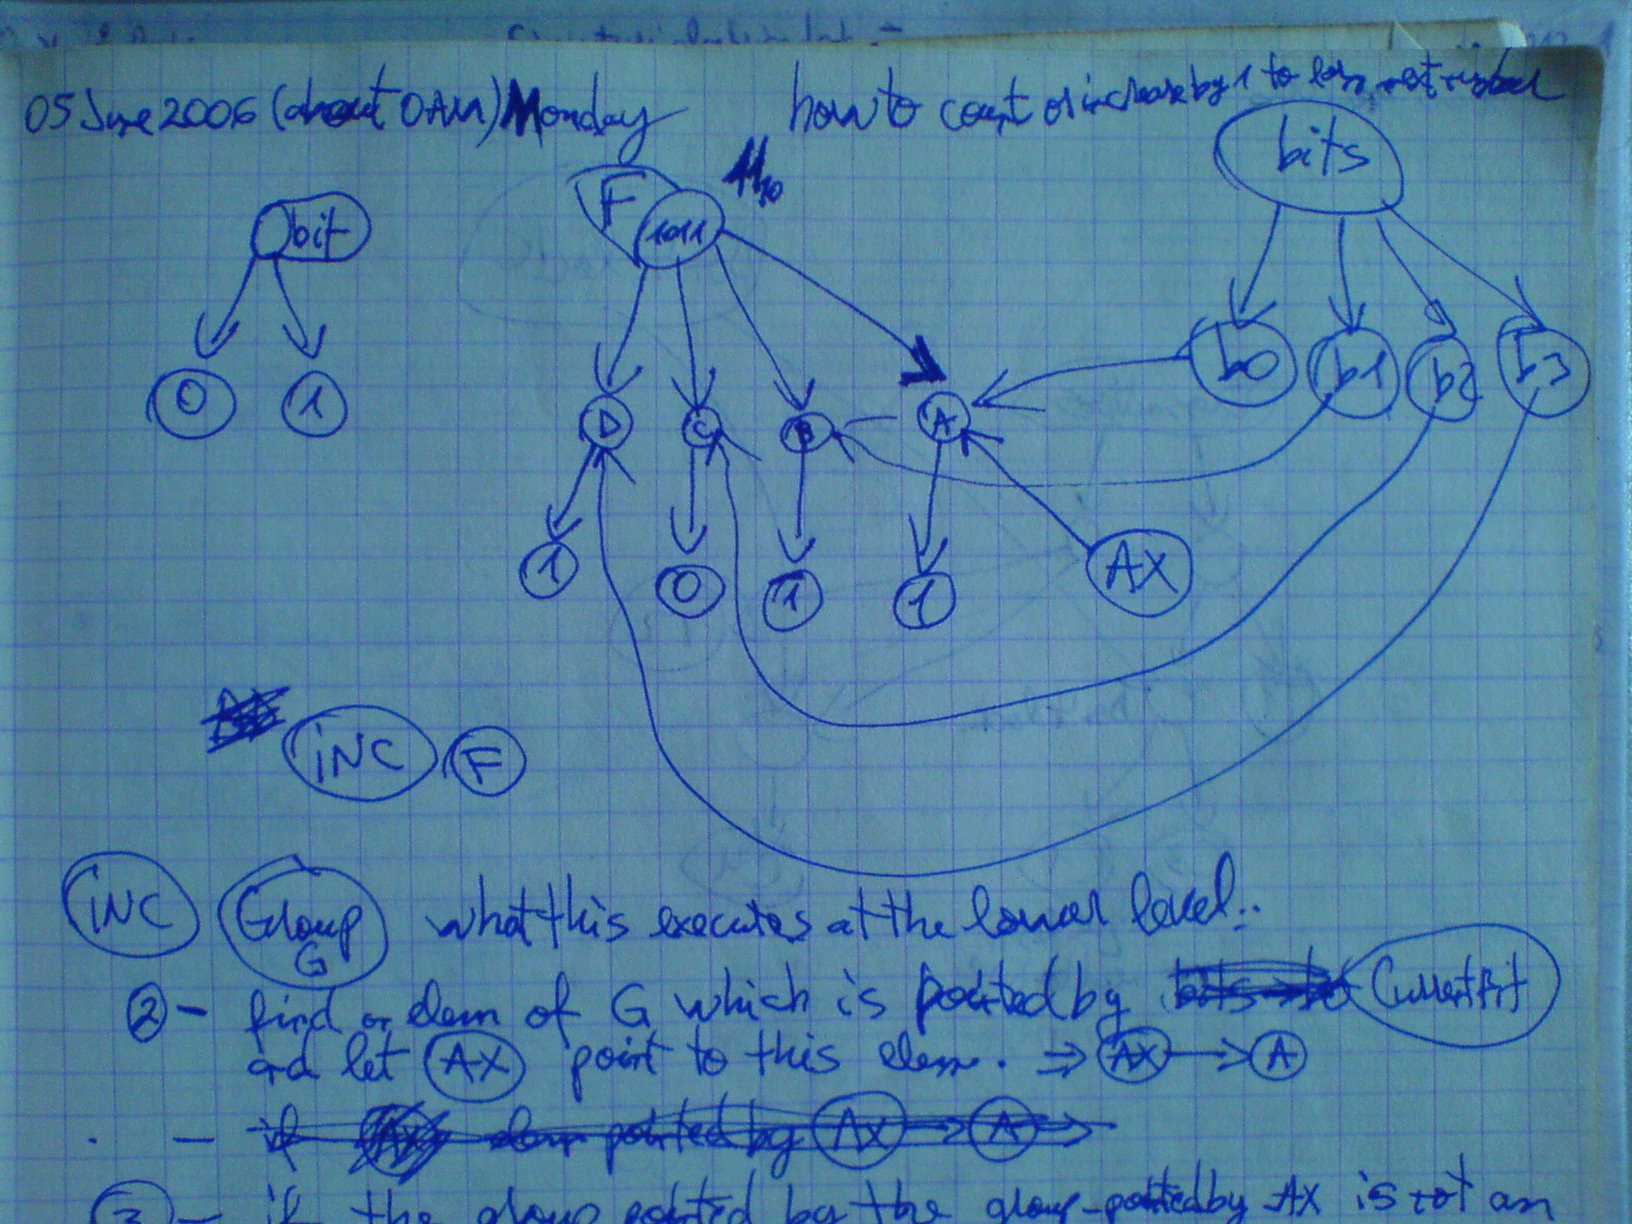 05 June 2006 (about 0AM) Monday how to count or increase by 1 to
bits
F 1011 11₁₀
bit
0 1
b0 b1 b2 b3
D C B A
1 0 1 1
AX
INC F
INC Group G what this executes at the lower level:
2 - find or elem of G which is pointed by CurrentBit
and let AX point to this elem. ⇒ AX → A
- if elem pointed by AX → A ⇒
3 - if the group pointed by the group pointed by AX is not an